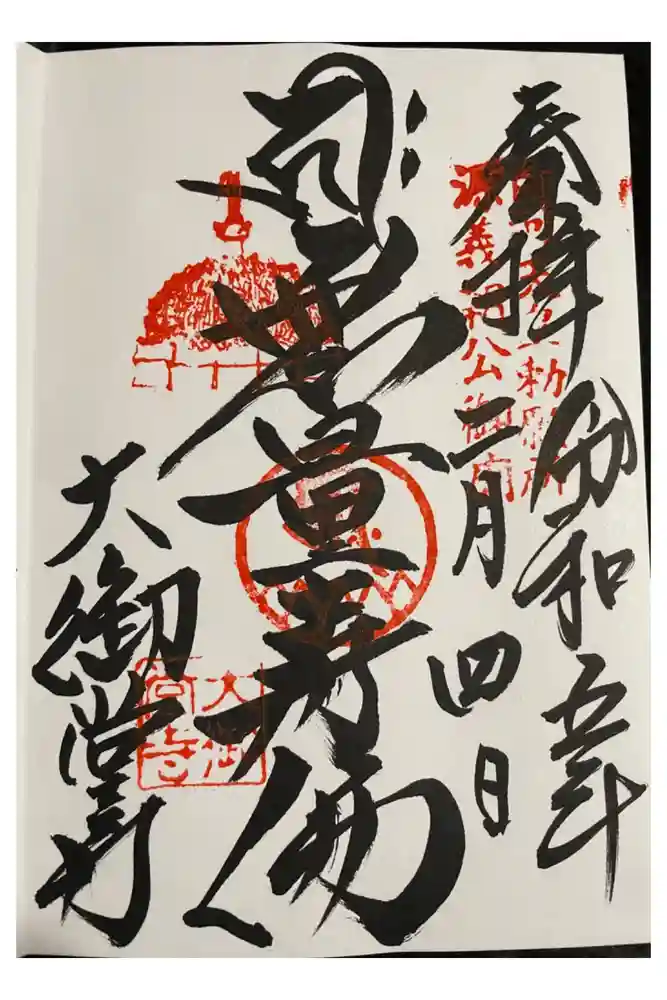 奉拝
令和五年
二月四日
勅願所
源義朝公御廟
無量寿佛
大御堂寺
大御
堂寺